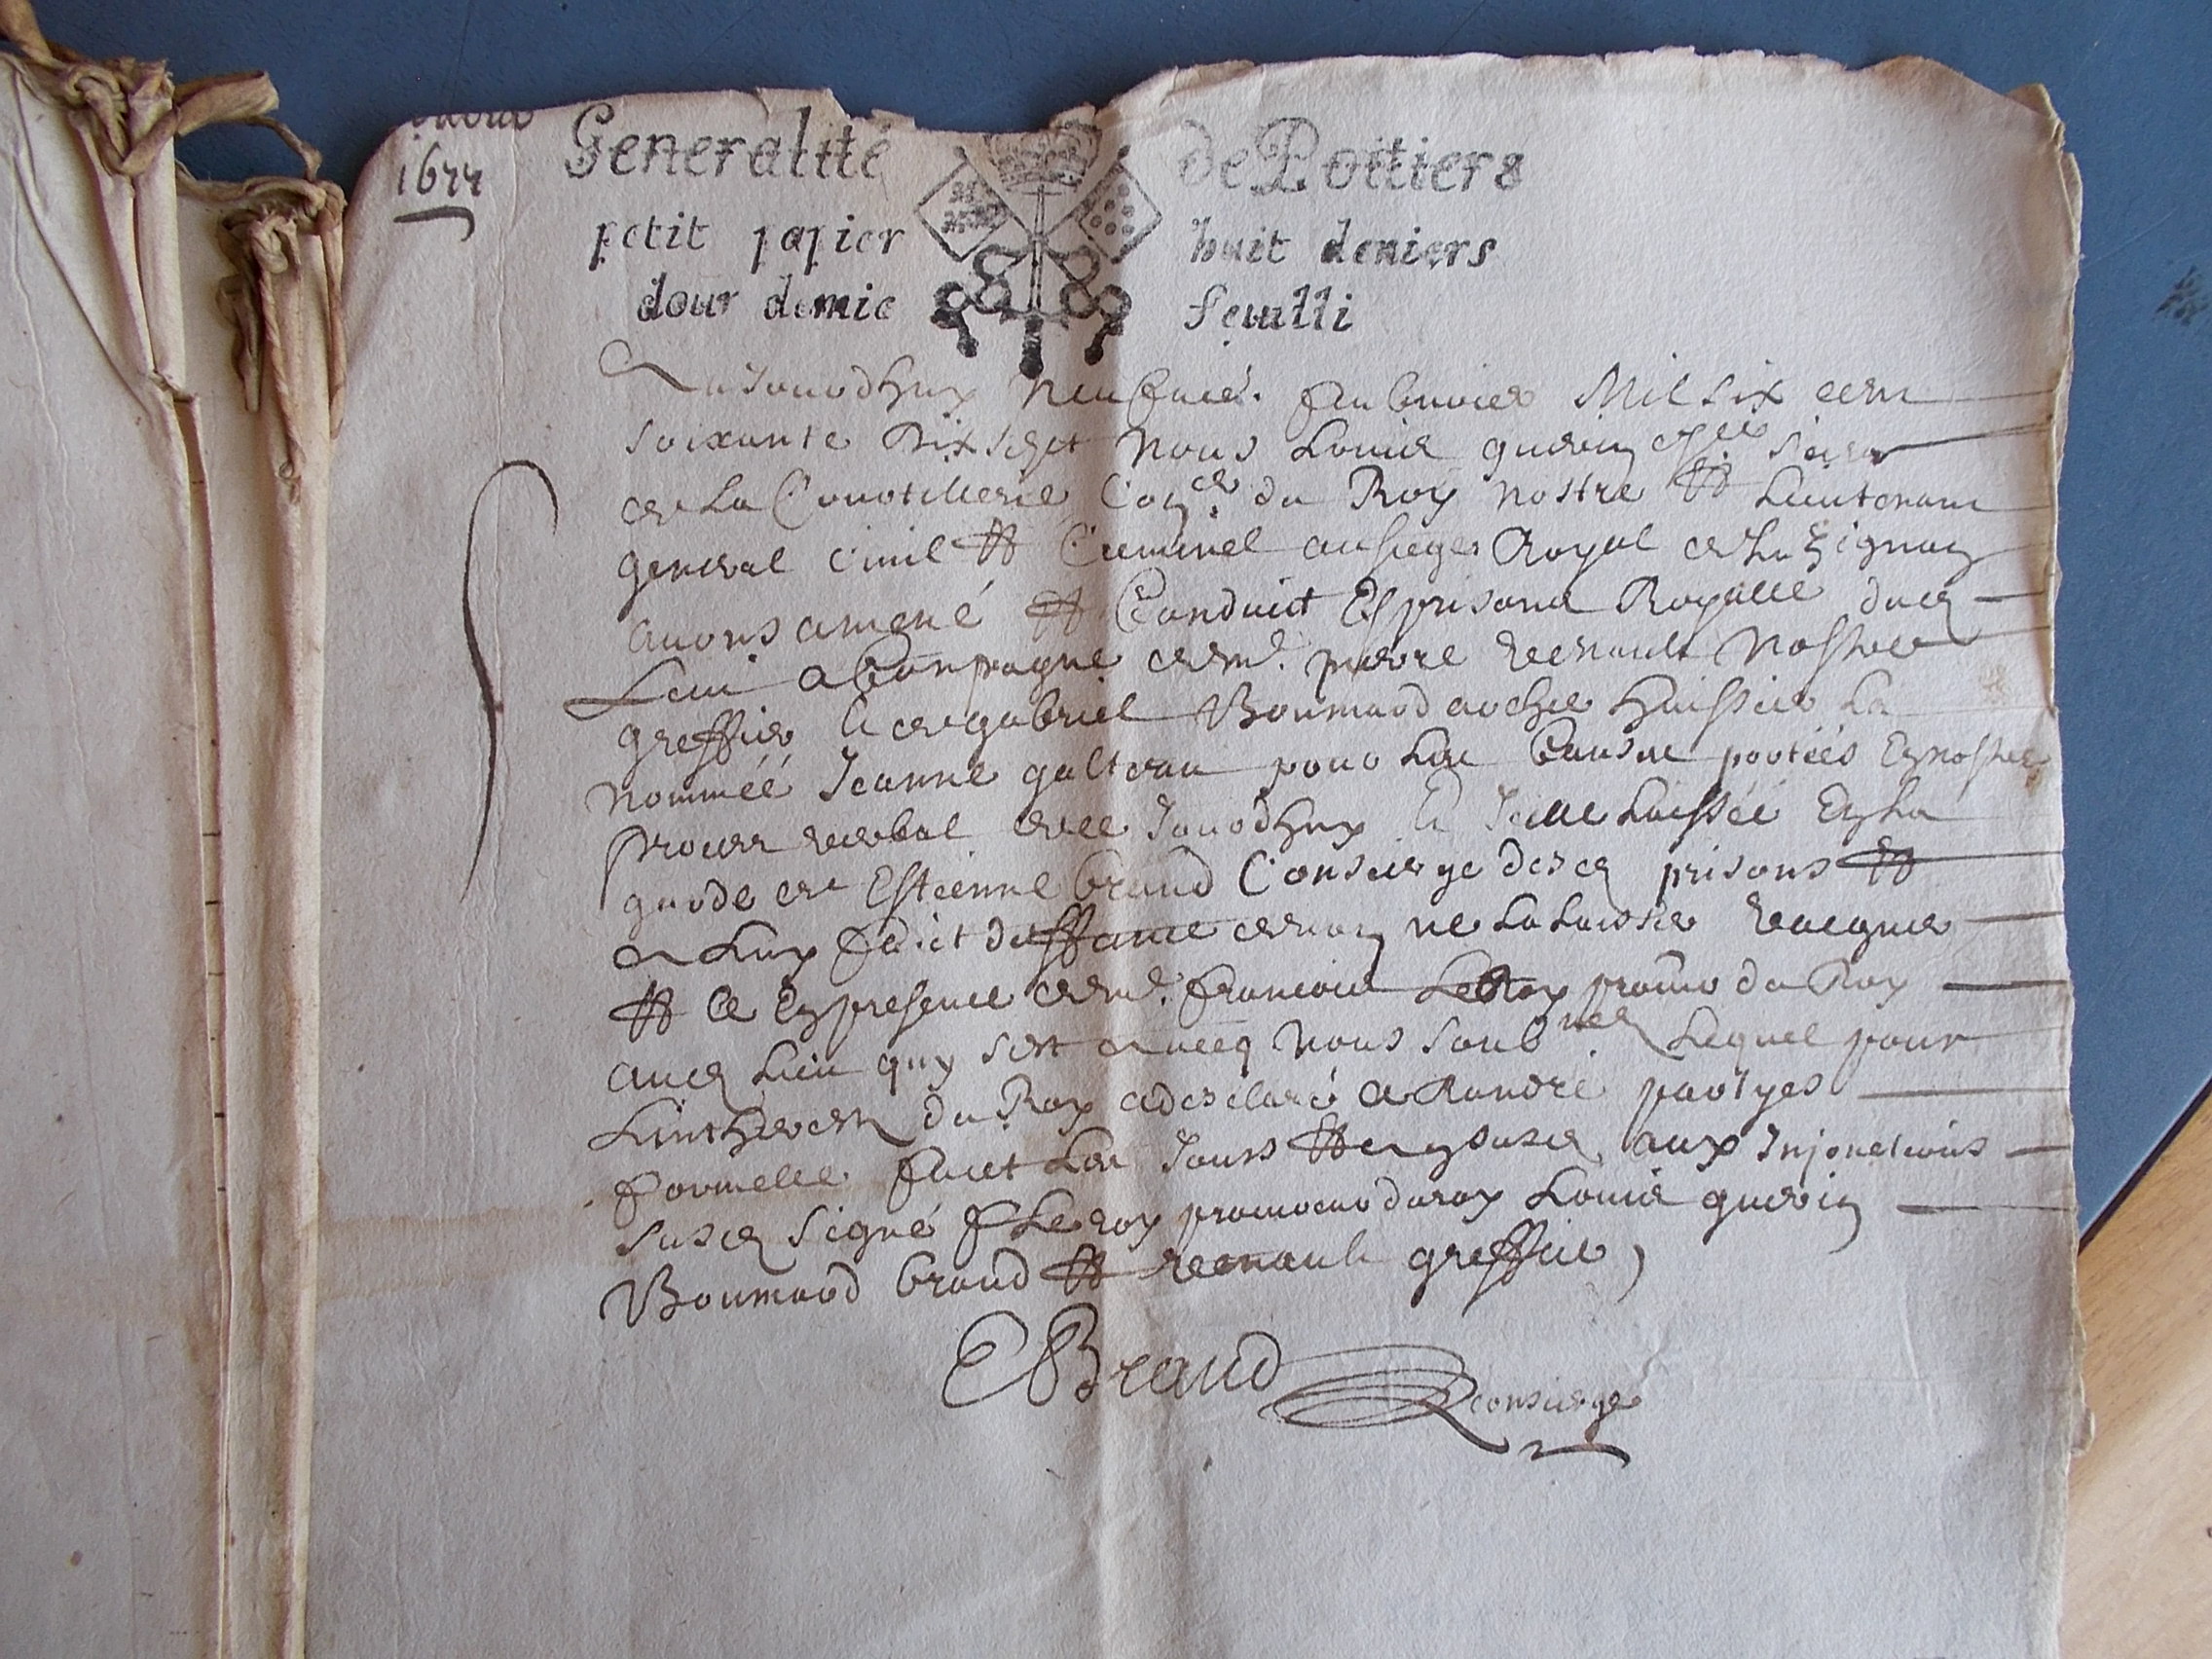 1677
Generalité de Poitiers
petit papier huit deniers
pour demie feuille
Aujourdhuy neufuie. feubvrier Mil six cens
soixante dix sept nous Louis guerin sieur
de La Courtillerie Con.er du Roy nostre et Lieutenant
general Civil et Criminel au siege Royal de Luzignan
avons amené et Conduit Es prisons Royalle duct
Lieu acConpagné de m.e pierre Regnault nostre
greffier et de gabriel Boumard archer huissier La
nommée Jeanne galterau pour Les Causes portées En nostre
proces verbal de ce Jourdhuy et Icelle Laissée En La
garde de Estienne braud Consierge desd prisons et
a Luy faict deffance de non ne La Laisser
et Ce En presence de m.e francois LeRoy du Roy
aud Lieu quy sest avecq nous soub Lequel pour
Lintherest du Roy a desclaré a Randre partyes
formelle faict Les Jours et an susd aux Injonctions
susd signé f Leroy procureur du roy Louis guerin
Boumard braud et Regnault greffier
E Braud consierge